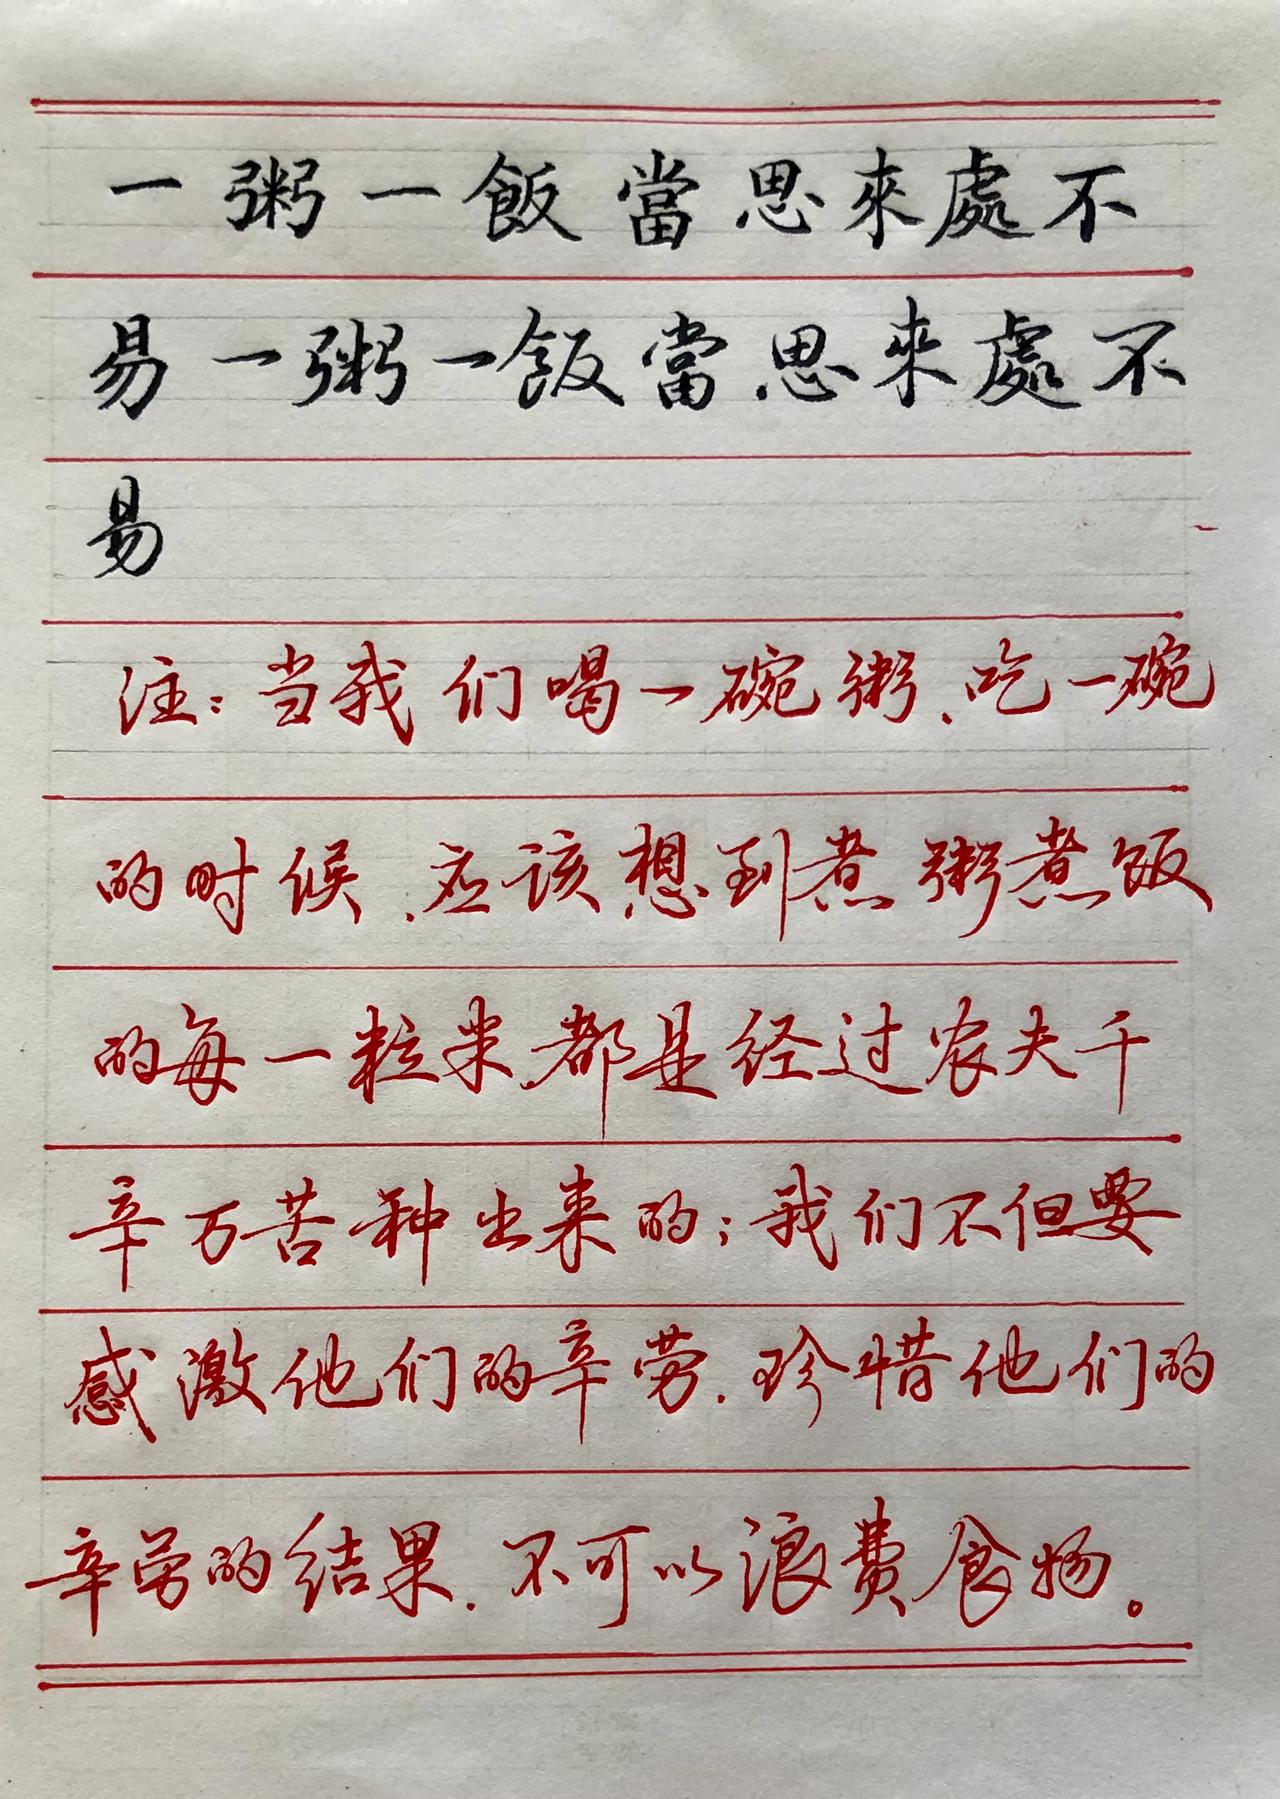 一粥一飯當思來處不
易一粥一飯當思來處不
易
注:当我们喝一碗粥、吃一碗
的时候、应该想到煮粥煮饭
的每一粒米都是经过农夫千
辛万苦种出来的;我们不但要
感激他们的辛劳.珍惜他们的
辛劳的结果.不可以浪费食物。